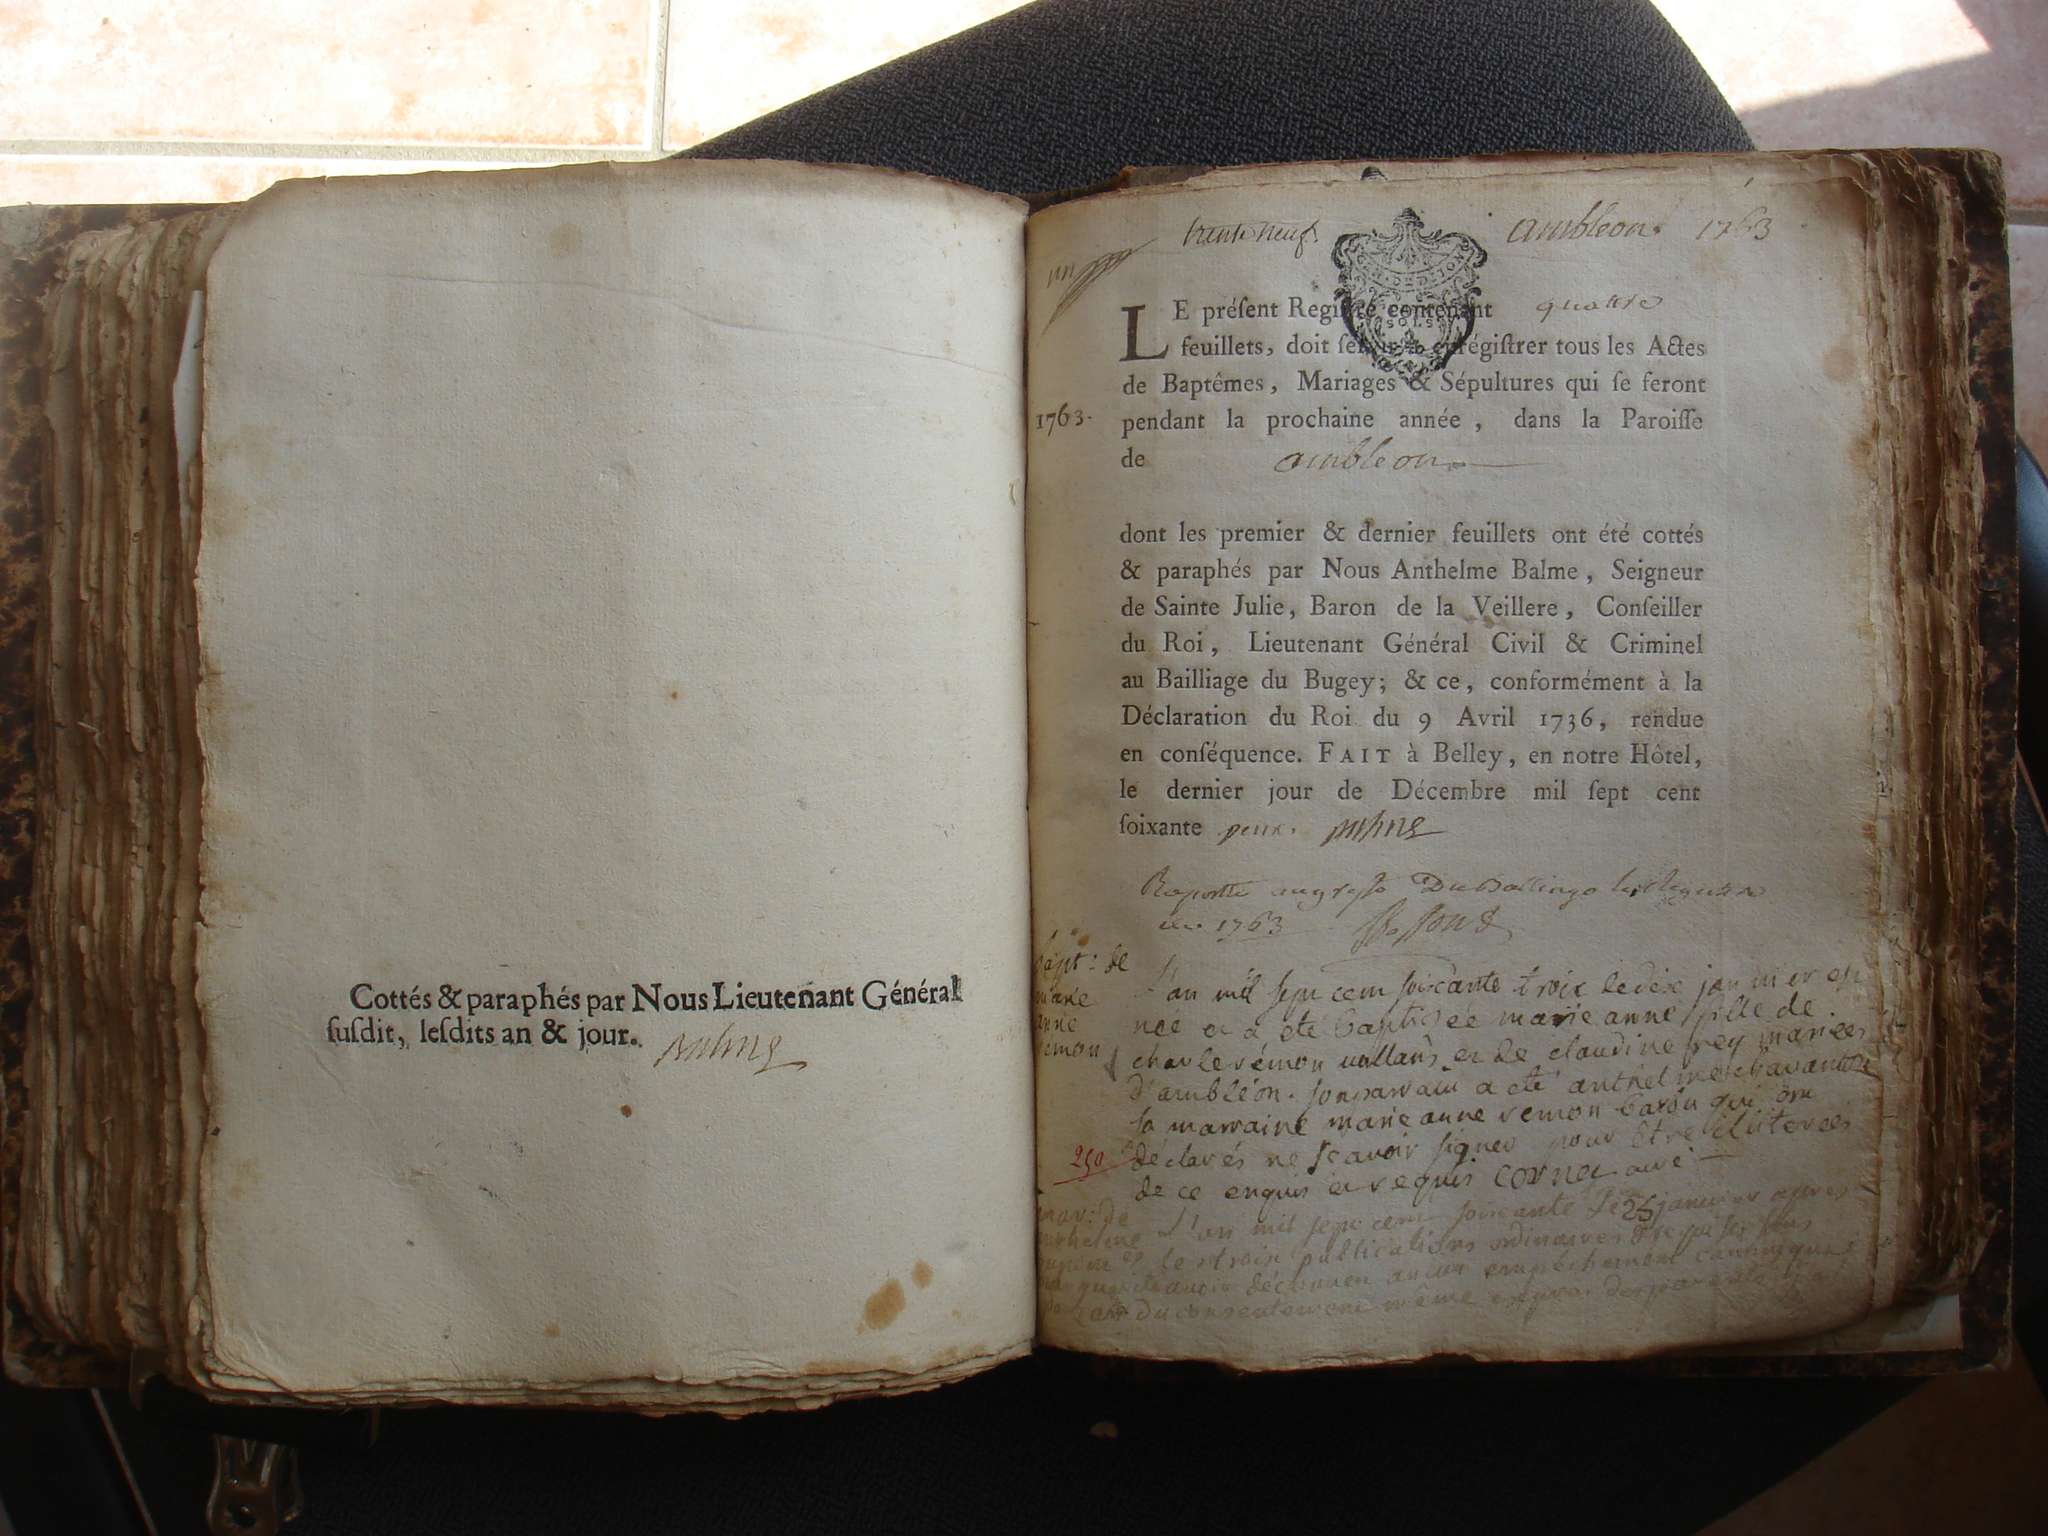 Cottés & paraphés par Nous Lieutenant Général
ſuſdit, leſdits an & jour.
trente neuf. ambleon. 1763
un
LE préſent Regiſtre contenant quattre
feuillets, doit ſervir à enrégiſtrer tous les Actes
de Baptêmes, Mariages & Sépultures qui ſe feront
1763. pendant la prochaine année, dans la Paroiſſe
de ambleon.
dont les premier & dernier feuillets ont été cottés
& paraphés par Nous Anthelme Balme, Seigneur
de Sainte Julie, Baron de la Veillere, Conſeiller
du Roi, Lieutenant Général Civil & Criminel
au Bailliage du Bugey; & ce, conformément à la
Déclaration du Roi du 9 Avril 1736, rendue
en conſéquence. FAIT à Belley, en notre Hôtel,
le dernier jour de Décembre mil ſept cent
ſoixante deux.
1763
bapt: de
marie
anne
remon
l'an mil sept cent soixante troix le dix janvier est
née et a été baptisée marie anne fille de
charle rémon vallans et de claudine rey mariees
d'ambléon. son parrain a été anthelme
sa marraine marie anne remon qui ont
déclarés ne sçavoir signer pour être illiterées
250
de ce enquis et requis cornet curé
mar: de
L'an mil sept cent soixante le 25 janvier après
les troix publications ordinaires
avoir découvert aucun empêchement canonique
du consentement même des parents